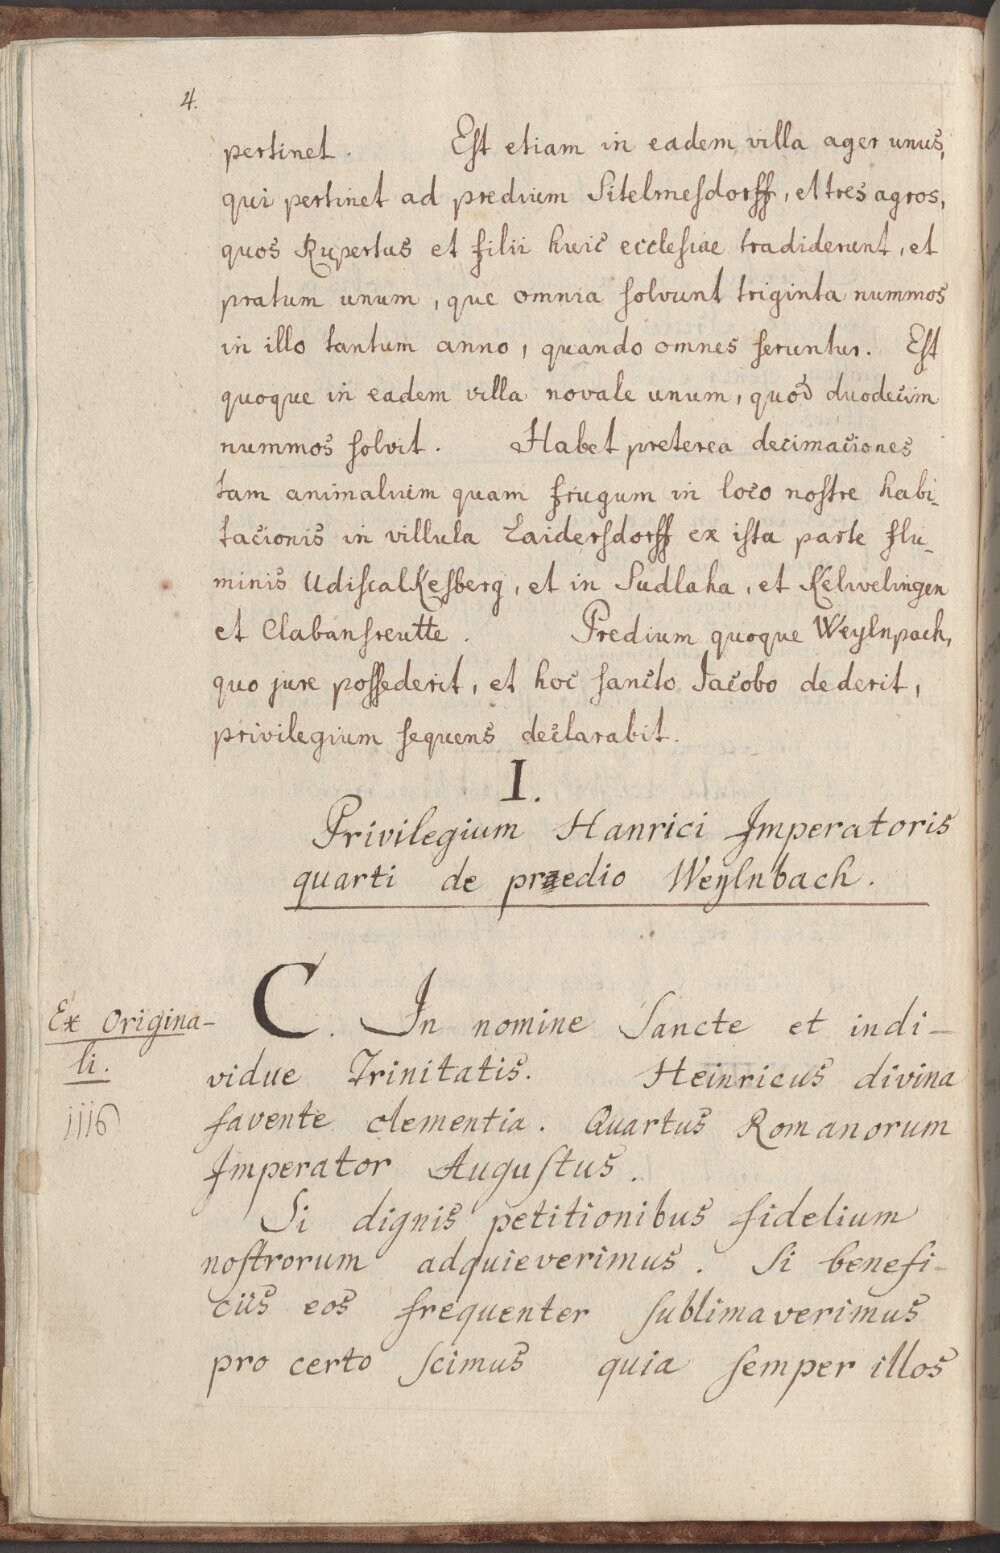 4.
pertinet. Est etiam in eadem villa ager unus,
qui pertinet ad predium Sitelmesdorff, et tres agros,
quos Rupertus et filii huic ecclesiae tradiderunt, et
pratum unum, que omnia solvunt triginta nummos
in illo tantum anno, quando omnes seruntur. Est
quoque in eadem villa novale unum, quod duodecim
nummos solvit. Habet preterea decimaciones
tam animalium quam frugum in loco nostre habi-
tacionis in villula Laidersdorff ex ista parte flu-
minis Udiscalkesberg, et in Sudlaha, et Kelwelingen
et Clabansreutte. Predium quoque Weylnpach,
quo jure possederit, et hoc sancto Jacobo dederit,
privilegium sequens declarabit.
I.
Privilegium Hanrici Imperatoris
quarti de praedio Weylnbach.
Ex Origina-
li.
1116
C. In nomine Sancte et indi-
vidue Trinitatis. Heinricus divina
favente clementia. Quartus Romanorum
Imperator Augustus.
Si dignis petitionibus fidelium
nostrorum adquieverimus. Si benefi-
ciis eos frequenter sublimaverimus
pro certo scimus quia semper illos